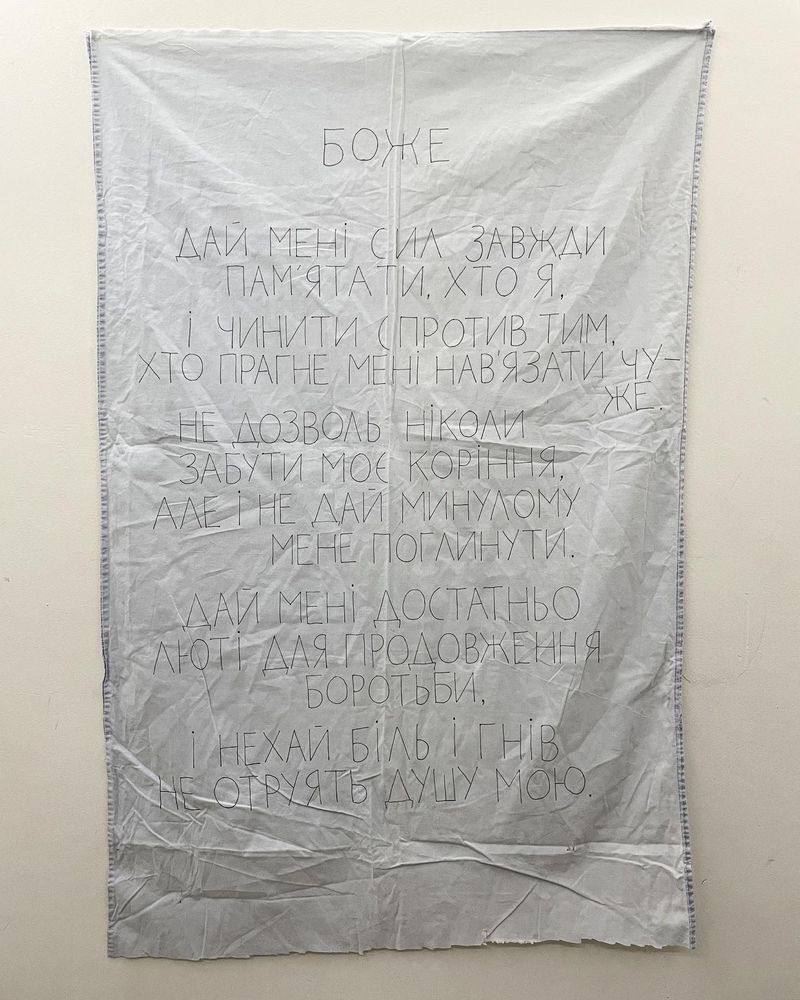 БОЖЕ
ДАЙ МЕНІ СИЛ ЗАВЖДИ
ПАМ'ЯТАТИ, ХТО Я,
І ЧИНИТИ СПРОТИВ ТИМ,
ХТО ПРАГНЕ МЕНІ НАВ'ЯЗАТИ ЧУ-
ЖЕ.
НЕ ДОЗВОЛЬ НІКОЛИ
ЗАБУТИ МОЄ КОРІННЯ,
АЛЕ І НЕ ДАЙ МИНУЛОМУ
МЕНЕ ПОГЛИНУТИ.
ДАЙ МЕНІ ДОСТАТНЬО
ЛЮТІ ДЛЯ ПРОДОВЖЕННЯ
БОРОТЬБИ,
І НЕХАЙ БІЛЬ І ГНІВ
НЕ ОТРУЯТЬ ДУШУ МОЮ.